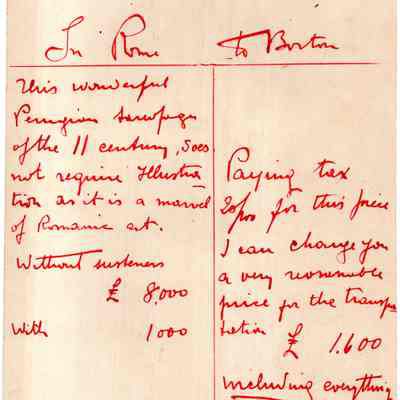 In Rome
This wonderful
Perugian
of the 11 century, does
not require Illustra
tion as it is a marvel
of Romanic art.
Without
£ 8,000
With 1000
to Boston
Paying tax
20% for this piece
I can charge you
a very reasonable
price for the transpor
tation £ 1.600
including everything